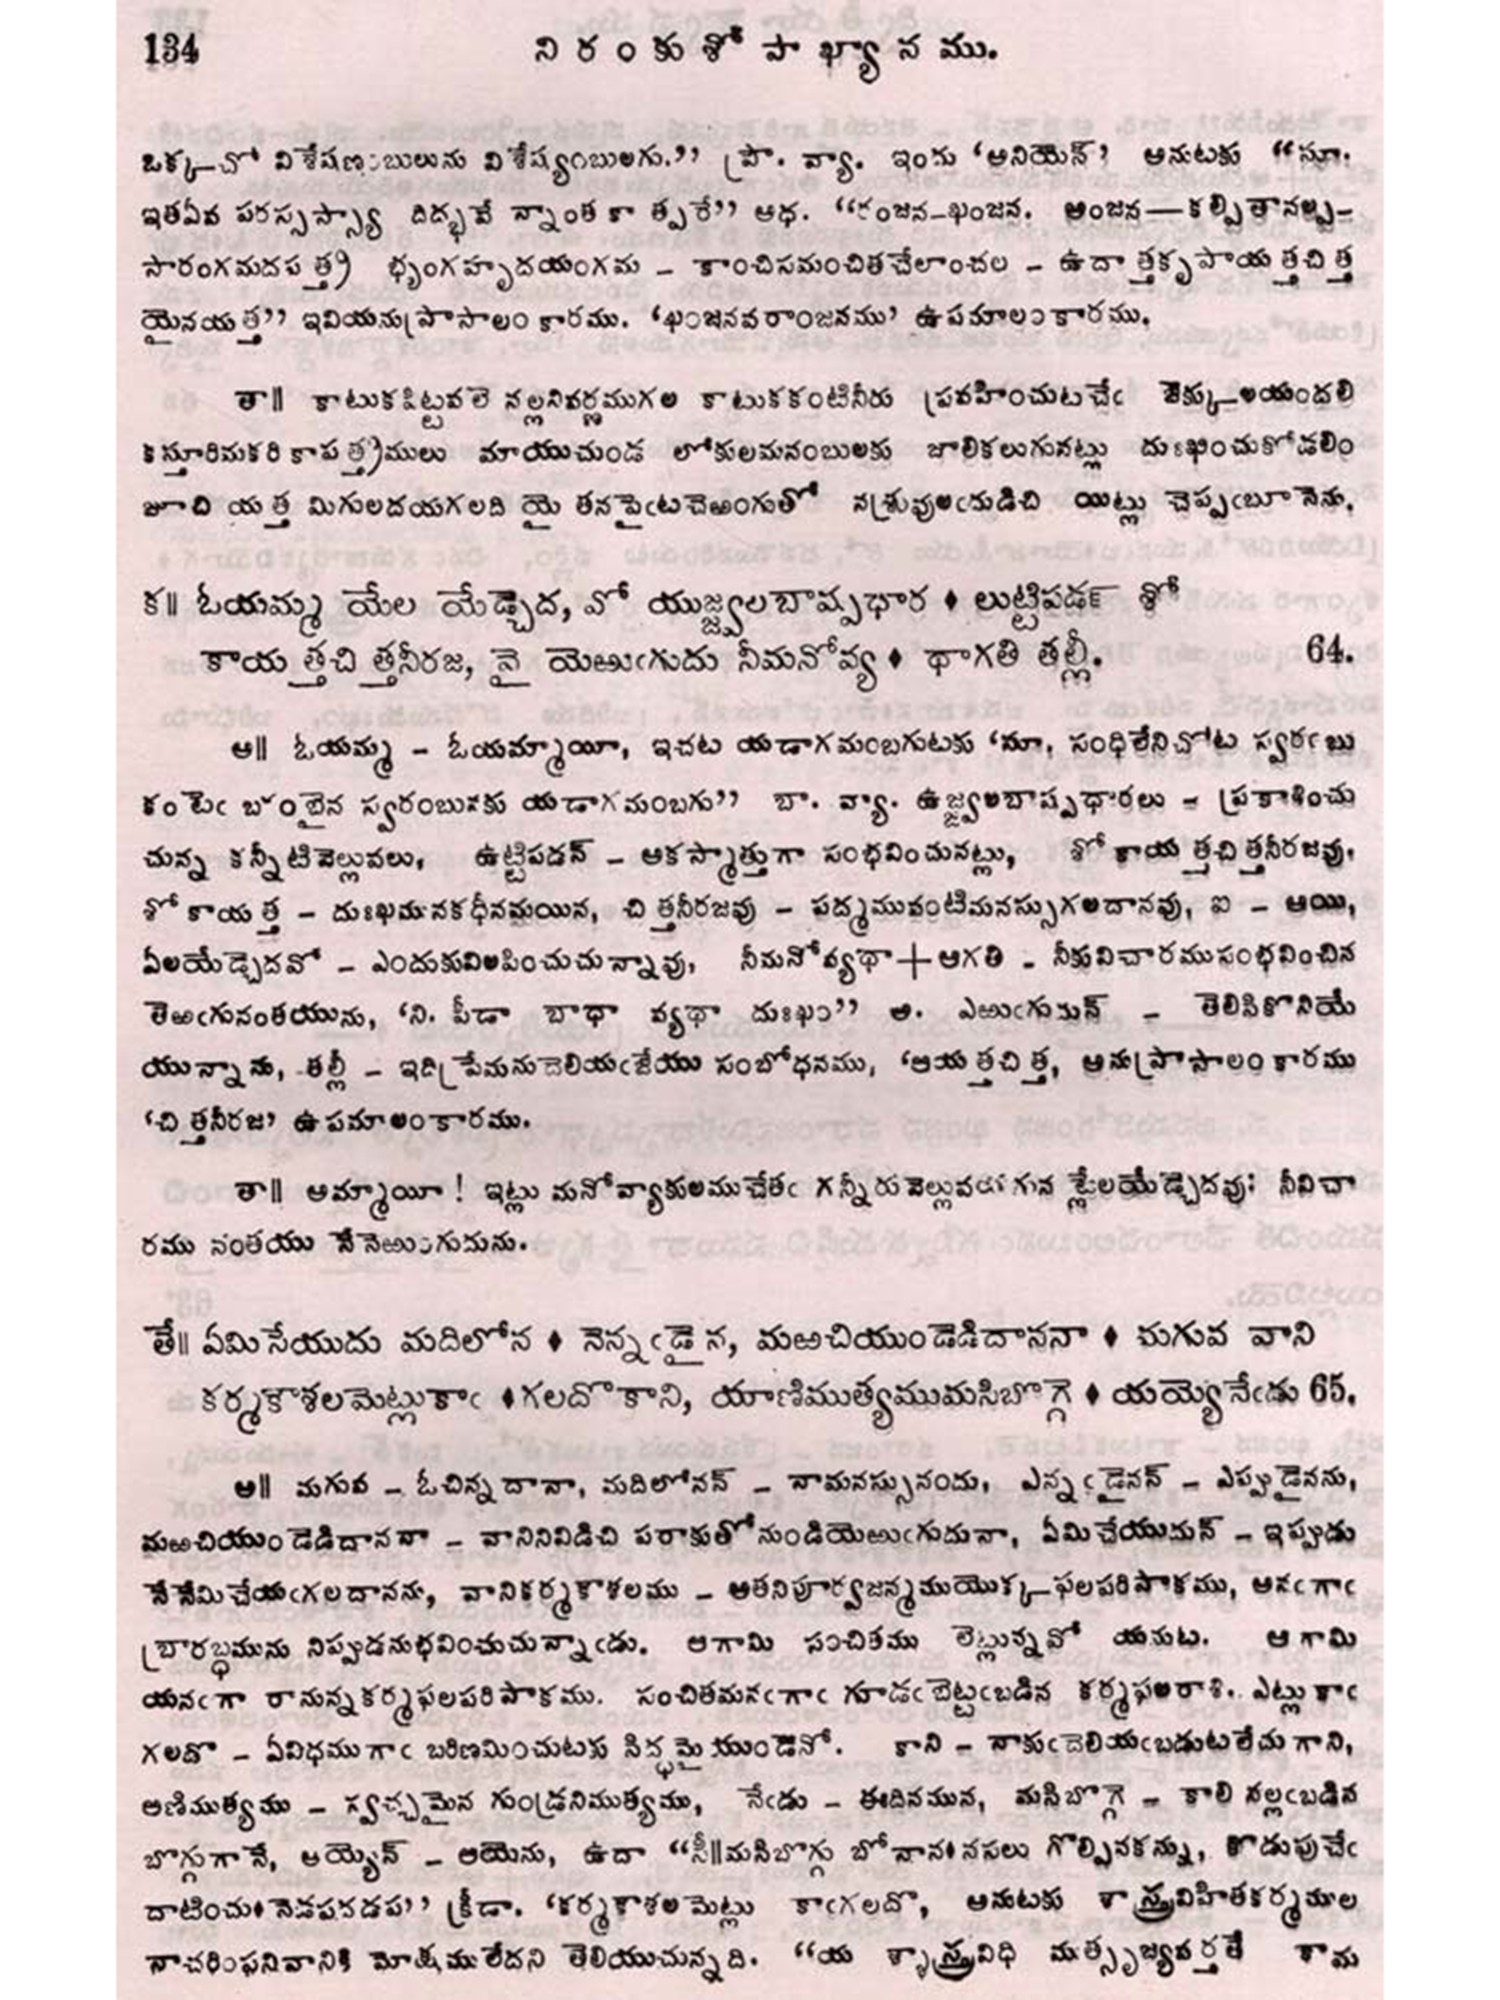 134 నిరంకుశోపాఖ్యానము.
ఒక్క—చో విశేషణంబులును విశేష్యంబులగు.” ప్రౌ. వ్యా. ఇందు ‘అనియెన్’ అనుటకు “సూ.
ఇతఏవ పరస్సస్స్యా దిద్భవే న్నాంత కా త్పరే” ఆధ. “రంజన-ఖంజన. అంజన—కల్పితానల్ప-
సారంగమదపత్త్ర భృంగహృదయంగమ - కాంచిసమంచితచేలాంచల - ఉదాత్తకృపాయత్తచిత్త
యైనయత్త” ఇవియనుప్రాసాలంకారము. ‘ఖంజనవరాంజనము’ ఉపమాలంకారము.
తా॥ కాటుకపిట్టవలె నల్లనివర్ణముగల కాటుకకంటినీరు ప్రవహించుటచేఁ జెక్కు—లయందలి
కస్తూరిమకరికాపత్త్రములు మాయుచుండ లోకులమనంబులకు జాలికలుగునట్లు దుఃఖించుకోడలిం
జూచి యత్త మిగులదయగలది యై తనపైఁటచెఱంగుతో నశ్రువులఁదుడిచి యిట్లు చెప్పఁబూనెను.
క॥ ఓయమ్మ యేల యేడ్చెద, వో యుజ్జ్వలబాష్పధార ♦ లుట్టిపడఁ శో
కాయత్తచిత్తనీరజ, వై యెఱుఁగుదు నీమనోవ్య ♦ థాగతి తల్లీ. 64.
అ॥ ఓయమ్మ - ఓయమ్మాయీ, ఇచట యడాగమంబగుటకు ‘సూ. సంధిలేనిచోట స్వరంబు
కంటెఁ బరంబైన స్వరంబునకు యడాగమంబగు” బా. వ్యా. ఉజ్జ్వలబాష్పధారలు - ప్రకాశించు
చున్న కన్నీటివెల్లువలు, ఉట్టిపడన్ - ఆకస్మాత్తుగా సంభవించునట్లు, శోకాయత్తచిత్తనీరజవు.
శోకాయత్త - దుఃఖమునకధీనమయిన, చిత్తనీరజవు - పద్మమువంటిమనస్సుగలదానవు, ఐ - అయి,
ఏలయేడ్చెదవో - ఎందుకువిలపించుచున్నావు, నీమనోవ్యథా+ఆగతి - నీకువిచారముసంభవించిన
తెఱఁగునంతయును, ‘ని. పీడా బాధా వ్యథా దుఃఖం” అ. ఎఱుఁగుదున్ - తెలిసికొనియే
యున్నాను, తల్లీ - ఇదిప్రేమనుదెలియఁజేయు సంబోధనము, ‘ఆయత్తచిత్త, అనుప్రాసాలంకారము
‘చిత్తనీరజ’ ఉపమాలంకారము.
తా॥ అమ్మాయీ ! ఇట్లు మనోవ్యాకులముచేతఁ గన్నీరువెల్లువ గున ట్లేలయేడ్చెదవు? నీవిచా
రము నంతయు నేనెఱుంగుదును.
తే॥ ఏమిసేయుదు మదిలోన ♦ నెన్నఁడైన, మఱచియుండెడిదాననా ♦ మగువ వాని
కర్మకౌశలమెట్లుకాఁ ♦గలదొకాని, యాణిముత్యముమసిబొగ్గె ♦ యయ్యెనేఁడు 65.
అ॥ మగువ - ఓచిన్నదానా, మదిలోనన్ - నామనస్సునందు, ఎన్నఁడైనన్ - ఎప్పుడైనను,
మఱచియుండెడిదాననా - వానినివిడిచి పరాకుతోనుండియెఱుఁగుదునా, ఏమిచేయుదున్ - ఇప్పుడు
నేనేమిచేయఁగలదానను, వానికర్మకౌశలము - అతనిపూర్వజన్మముయొక్క—ఫలపరిపాకము, అనఁగాఁ
బ్రారబ్ధమును నిప్పుడనుభవించుచున్నాఁడు. ఆగామి సంచితము లెట్లున్నవో యనుట. ఆగామి
యనఁగా రానున్నకర్మఫలపరిపాకము. సంచితమనఁగాఁ గూడఁబెట్టఁబడిన కర్మఫలరాశి. ఎట్లు కాఁ
గలదొ - ఏవిధముగాఁ బరిణమించుటకు సిద్ధమై యుండెనో. కాని - నాకుఁదెలియఁబడుటలేదుగాని,
అణిముత్యము - స్వచ్ఛమైన గుండ్రనిముత్యము, నేఁడు - ఈదినమున, మసిబొగ్గె - కాలి నల్లఁబడిన
బొగ్గుగానే, అయ్యెన్ - ఆయెను, ఉదా “సీ॥మసిబొగ్గు బోనాన♦నసలు గొల్పినకన్ను, కొడుపుచేఁ
దాటించు♦నెడపదడప” క్రీడా. ‘కర్మకౌశలమెట్లు కాఁగలదొ, అనుటకు శాస్త్రవిహితకర్మముల
నాచరింపనివానికి మోక్షములేదని తెలియుచున్నది. “య శ్శాస్త్రవిధి ముత్సృజ్యవర్తతే కామ